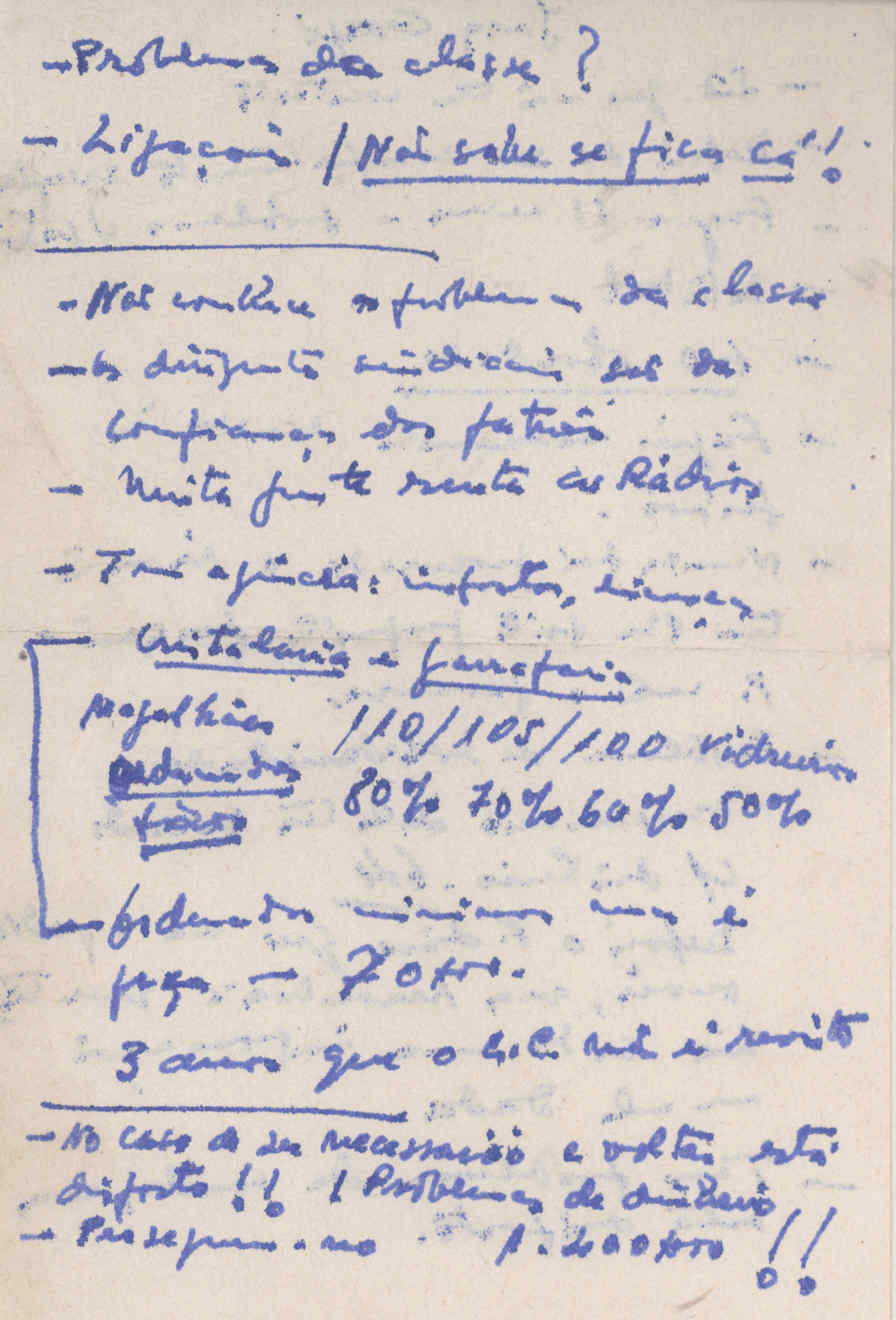 - Problemas da classe ?
- Ligações / Não sabe se fica cá !
- Não conhece os problemas da classe
- Os dirigentes sindicais são da
confiança dos patrões
- Muita gente escuta as Rádios
- Trai agência: impostos, licenças
Cristalaria e garrafaria
Magalhães 110/105/100 vidreiros
Ordenados 80% 70% 60% 50%
fixos
- Ordenados mínimos mas é
peça - 70$00.
3 anos que o C.C. não é revisto
- No caso de ser necessário e voltar está
disposto !! / Problemas de dinheiro
- Perseguem-no 1.200$00 !!